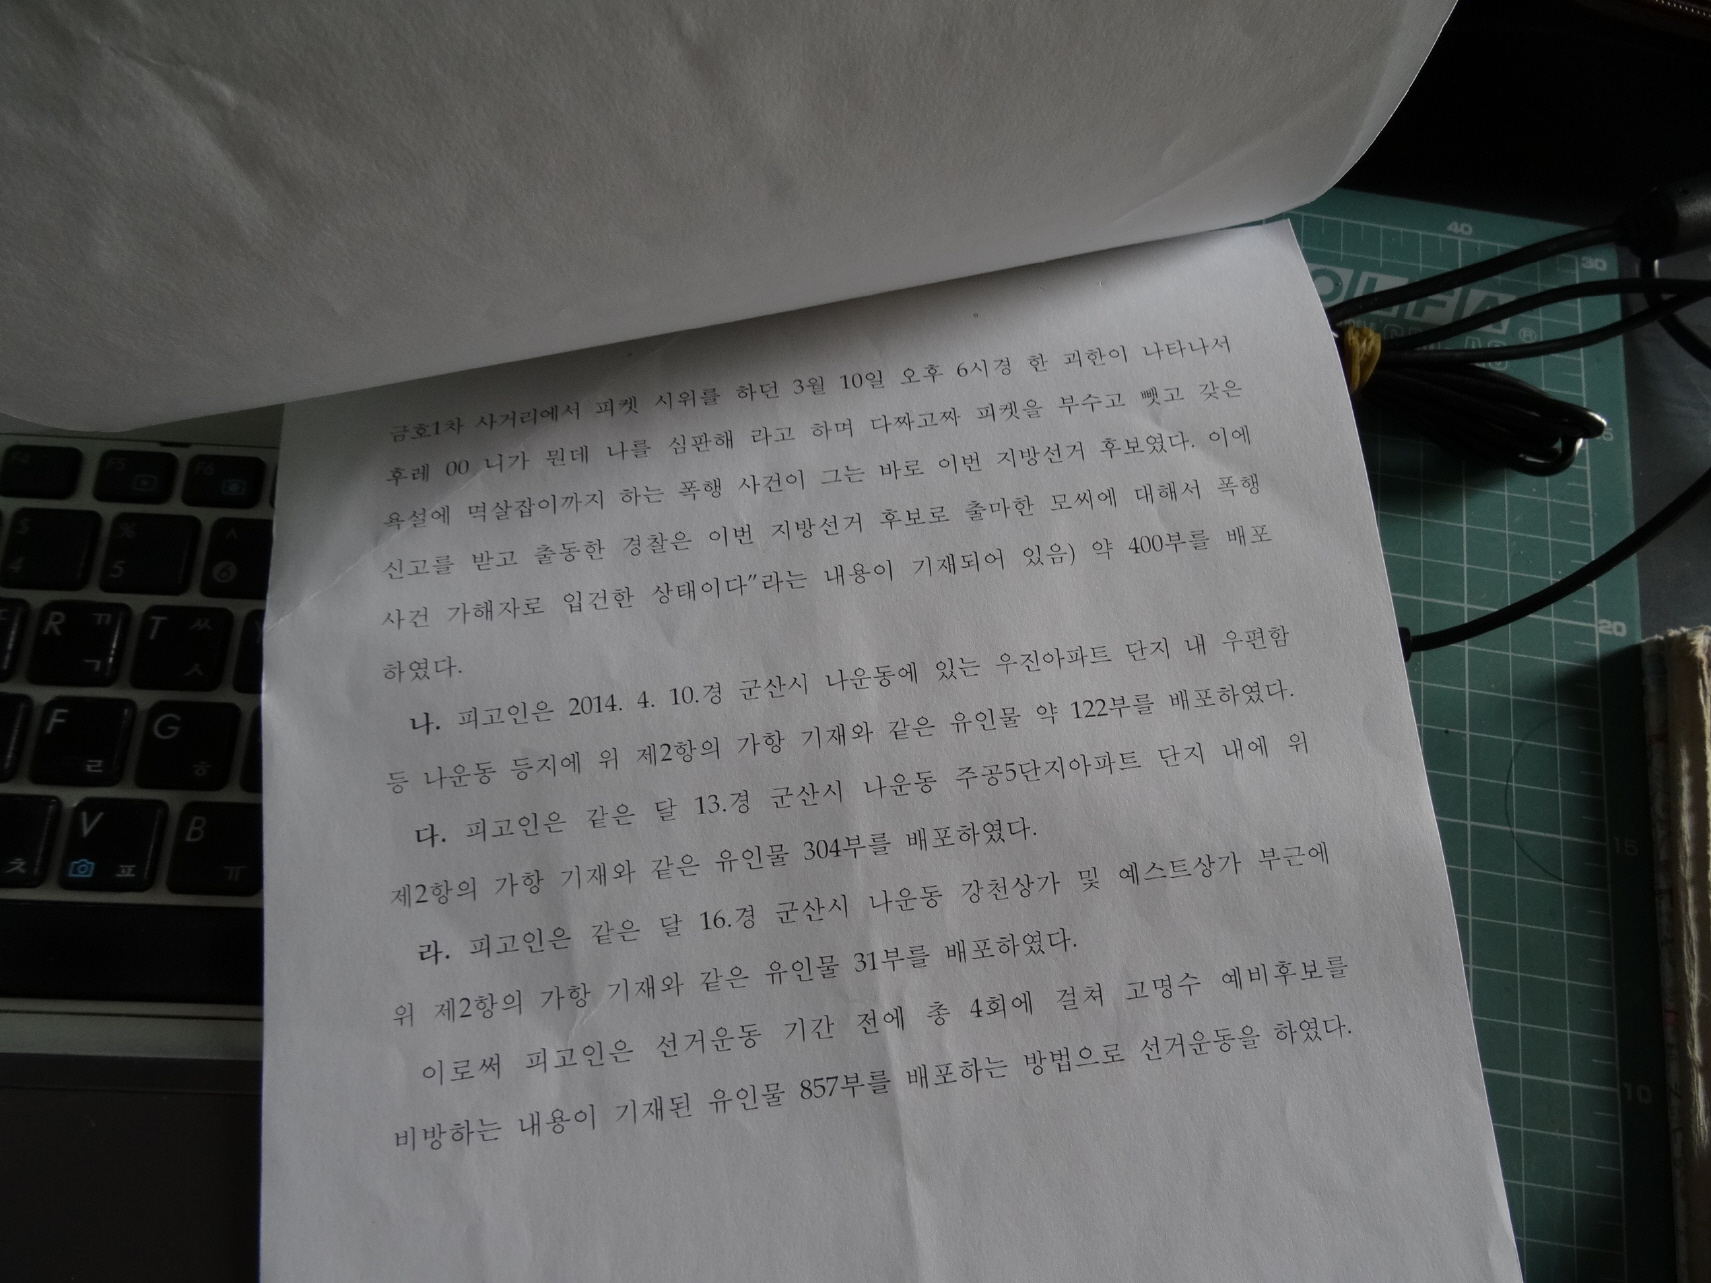 금호1차 사거리에서 피켓 시위를 하던 3월 10일 오후 6시경 한 괴한이 나타나서
후레 00 니가 뭔데 나를 심판해 라고 하며 다짜고짜 피켓을 부수고 뺏고 갖은
욕설에 멱살잡이까지 하는 폭행 사건이 그는 바로 이번 지방선거 후보였다. 이에
신고를 받고 출동한 경찰은 이번 지방선거 후보로 출마한 모씨에 대해서 폭행
사건 가해자로 입건한 상태이다"라는 내용이 기재되어 있음) 약 400부를 배포
하였다.
나. 피고인은 2014. 4. 10.경 군산시 나운동에 있는 우진아파트 단지 내 우편함
등 나운동 등지에 위 제2항의 가항 기재와 같은 유인물 약 122부를 배포하였다.
다. 피고인은 같은 달 13.경 군산시 나운동 주공5단지아파트 단지 내에 위
제2항의 가항 기재와 같은 유인물 304부를 배포하였다.
라. 피고인은 같은 달 16.경 군산시 나운동 강천상가 및 예스트상가 부근에
위 제2항의 가항 기재와 같은 유인물 31부를 배포하였다.
이로써 피고인은 선거운동 기간 전에 총 4회에 걸쳐 고명수 예비후보를
비방하는 내용이 기재된 유인물 857부를 배포하는 방법으로 선거운동을 하였다.
40
30
OLFA®
20
15
10
F5
F6
$ 4
% 5
^ 6
R ㄲ ㄱ
T ㅆ ㅅ
F ㄹ
G ㅎ
ㅊ
V ㅍ
B ㅠ